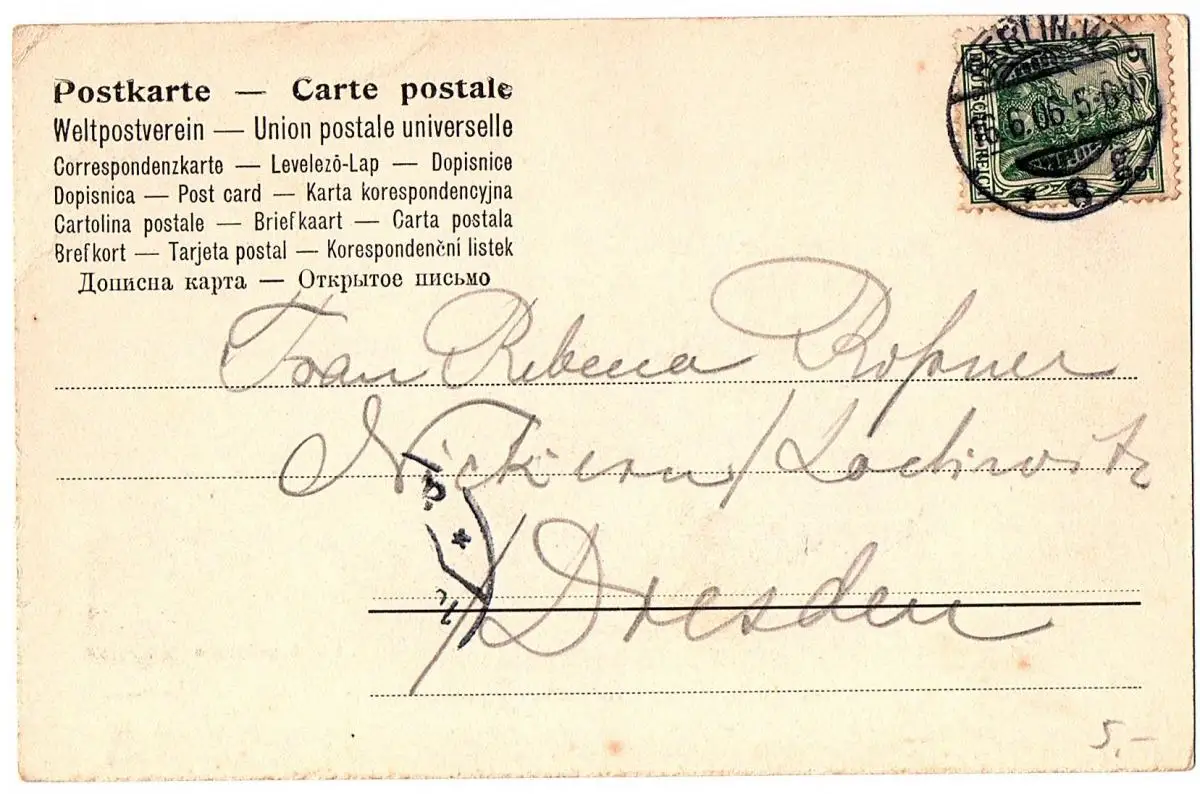 Postkarte — Carte postale
Weltpostverein — Union postale universelle
Correspondenzkarte — Levelező-Lap — Dopisnice
Dopisnica — Post card — Karta korespondencyjna
Cartolina postale — Briefkaart — Carta postala
Brefkort — Tarjeta postal — Korespondenční listek
Дописна карта — Открытое письмо
BERLIN.W.
6.06.5-6N
* 8 g.
5
DEUTSCHES REICH
5
Frau Rebena Roßner
Nickern / Lockwitz
/ Dresden
5.-